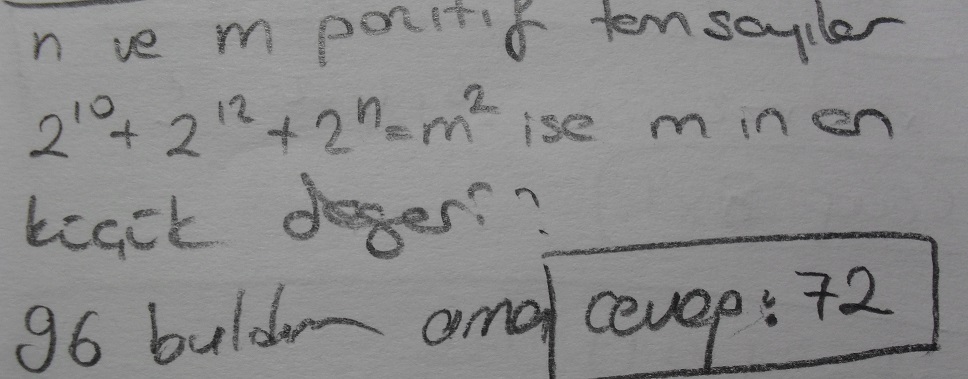 n ve m pozitif tam sayılar
2¹⁰ + 2¹² + 2ⁿ = m² ise m in en
küçük değeri?
96 buldum ama cevap: 72